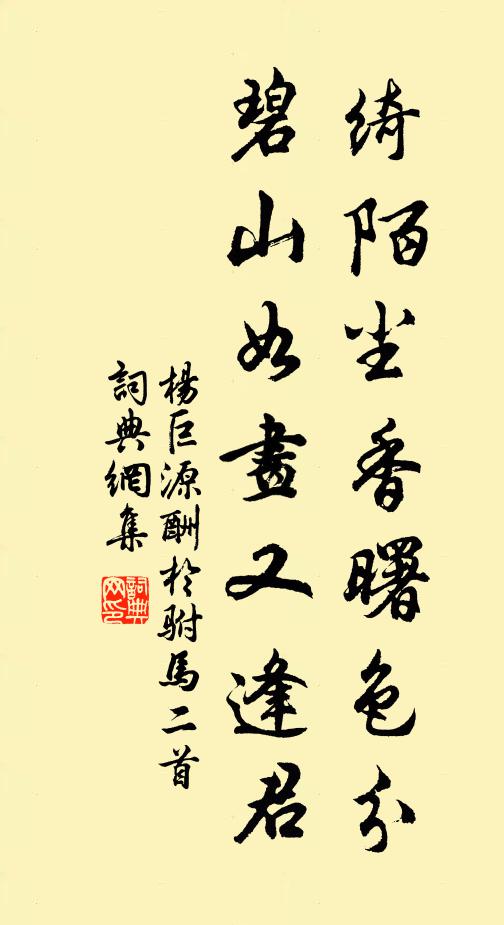 綺陌尘香曙色分
碧山如畫又逢君
楊巨源酬於駙馬二首
詞典網集
詞典
网印